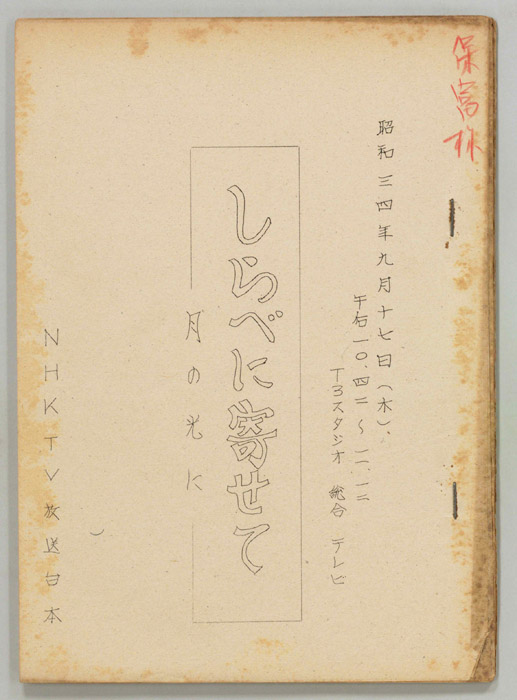 保富様
昭和三四年九月十七日(木)、
午后一〇、四二〜一一、一二
T3スタジオ 総合 テレビ
しらべに寄せて
月の光に
NHKTV放送台本